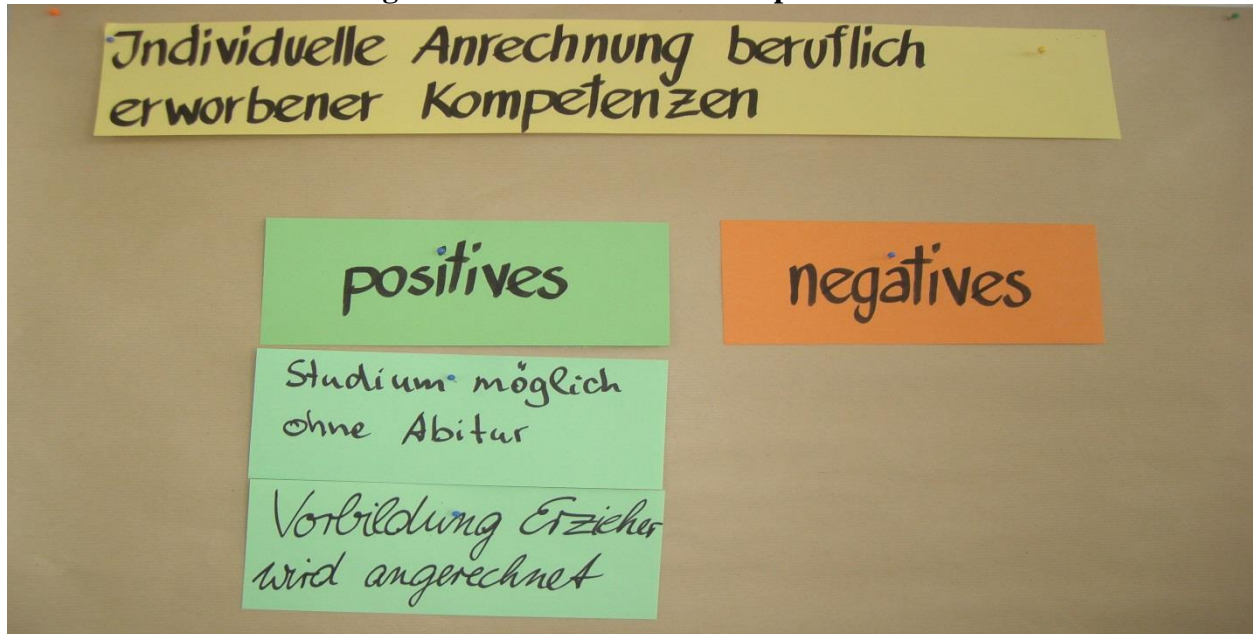 Individuelle Anrechnung beruflich
erworbener Kompetenzen
positives
negatives
Studium möglich
ohne Abitur
Vorbildung Erzieher
wird angerechnet